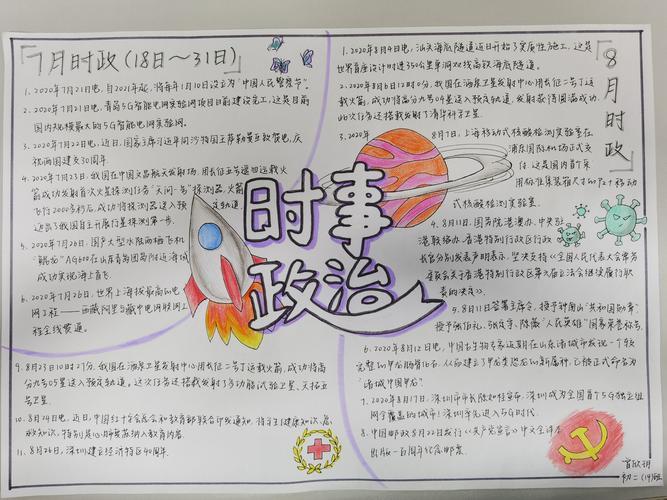 「7月时政(18日~31日)」
1. 2020年7月21日电，自2021年起，将每年1月10日设立为“中国人民警察节”。
2. 2020年7月21日电，青岛5G智能电网实验网项目日前建设完工，这是目前
国内规模最大的5G智能电网实验网。
3. 2020年7月22日电，近日，国家主席习近平同沙特国王萨勒曼互致贺电，庆
祝两国建交30周年
4. 2020年7月23日，我国在中国文昌航天发射场，用长征五号遥四运载火
箭成功发射首次火星探测任务“天问一号”探测器，火箭
飞行2000多秒后，成功将探测器送入预定轨道，
迈出了我国自主开展行星探测第一步。
5. 2020年7月26日，国产大型水陆两栖飞机
“鲲龙”AG600在山东青岛团岛附近海域
成功实现海上首飞。
6. 2020年7月26日，世界上海拔最高的电
网工程——西藏阿里与藏中电网联网工
程全线贯通。
时事
政治
「8月时政」
1. 2020年8月4日电，汕头海底隧道近日开始了实质性施工，这是
世界首座设计时速350公里单洞双线高铁海底隧道。
2. 2020年8月6日12时0分，我国在酒泉卫星发射中心用长征二号丁运
载火箭，成功将高分九号04星送入预定轨道，发射获得圆满成功，
此次任务还搭载发射了清华科学卫星。
3. 2020年8月7日，上海移动式核酸检测实验室在
浦东国际机场正式交
付，这是国内首个采
用标准集装箱尺寸的P2+移动
式核酸检测实验室。
4. 8月11日，国务院港澳办、中央驻
港联络办、香港特别行政区行政
长官分别发表声明表示，坚决支持《全国人民代表大会常务
委员会关于香港特别行政区第六届立法会继续履行职
责的决定》
5. 8月11日签署主席令，授予钟南山“共和国勋章”，
授予张伯礼、张定宇、陈薇“人民英雄”国家荣誉称号。
6. 2020年8月12日电，中国古生物专家近年日在山东诸城市发现一个较
完整的甲龙腰带化石，从而建立了甲龙类恐龙的新属种，它被正式命名为
“诸城中国甲龙”。
7. 2020年8月17日，深圳市市长陈如桂宣布，深圳成为全国首个5G独立组
网全覆盖的城市；深圳率先进入5G时代。
8. 中国邮政8月22日发行《共产党宣言》中文全译本
出版一百周年纪念邮票。
9. 8月23日10时27分，我国在酒泉卫星发射中心用长征二号丁运载火箭，成功将高
分九号05星送入预定轨道，这次任务还搭载发射了多功能试验卫星、天拓五
号卫星。
10. 8月24日电，近日，中国红十字会总会和教育部联合印发通知，将学生健康知识、急
救知识，特别是心肺复苏纳入教育内容。
11. 8月26日，深圳建立经济特区40周年。
初二(19)班